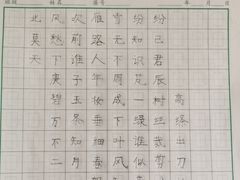 班级 姓名 座号 年 月 日
北风吹雁雪纷纷
莫愁前路无知己
天下谁人不识君
庚子年 周 辰
碧玉妆成一树高
万条垂下绿丝绦
不知细叶谁裁出
二月春风似剪刀